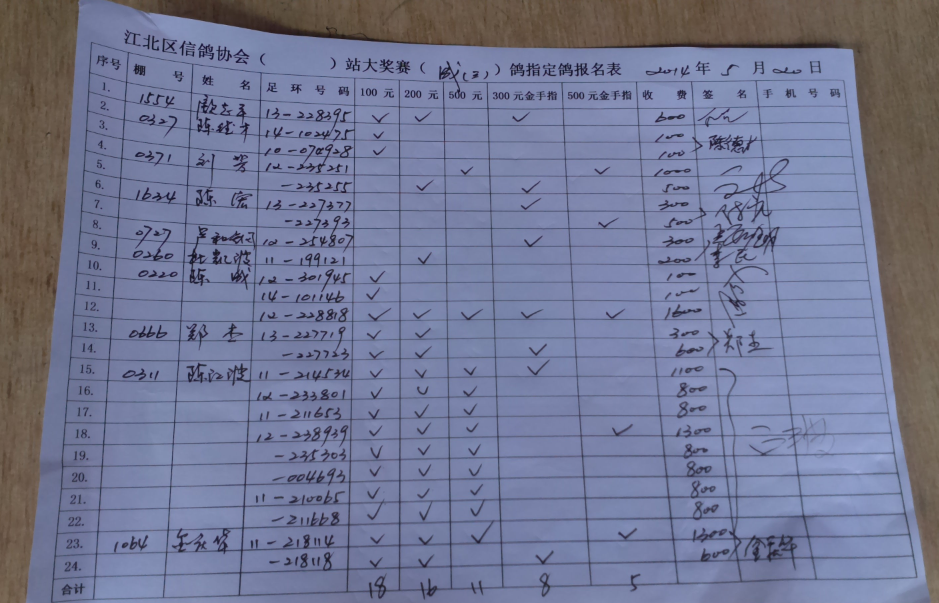 江北区信鸽协会（ ）站大奖赛（ 威(三) ）鸽指定鸽报名表 2014 年 5 月 20 日
序号 棚 号 姓 名 足 环 号 码 100 元 200 元 500 元 300 元金手指 500 元金手指 收 费 签 名 手 机 号 码
1. 1554 13-228395 ✓ ✓ ✓ 600
2. 0327 陈德才 14-102475 ✓ 100 陈德才
3. 10-074928 ✓ 100
4. 0371 刘芳 12-235251 ✓ ✓ 1000
5. -235255 ✓ ✓ 500
6. 1634 陈宏 13-227377 ✓ 300
7. -227393 ✓ 500
8. 0727 12-254807 ✓ 300
9. 0260 杜凯波 11-199121 ✓ 200
10. 0220 陈威 12-301945 ✓ 100
11. 14-101146 ✓ 100
12. 12-228818 ✓ ✓ ✓ ✓ ✓ 1600
13. 0666 郑杰 13-227719 ✓ ✓ 300 郑杰
14. -227723 ✓ ✓ ✓ 600
15. 0311 陈江波 11-214534 ✓ ✓ ✓ ✓ 1100
16. 12-233801 ✓ ✓ ✓ 800
17. 11-211653 ✓ ✓ ✓ 800
18. 12-238939 ✓ ✓ ✓ ✓ 1300
19. -235303 ✓ ✓ ✓ 800
20. -004693 ✓ ✓ ✓ 800
21. 11-210065 ✓ ✓ ✓ 800
22. -211668 ✓ ✓ ✓ 800
23. 1064 11-218114 ✓ ✓ ✓ ✓ 1300
24. -218118 ✓ ✓ ✓ 600
合计 18 16 11 8 5